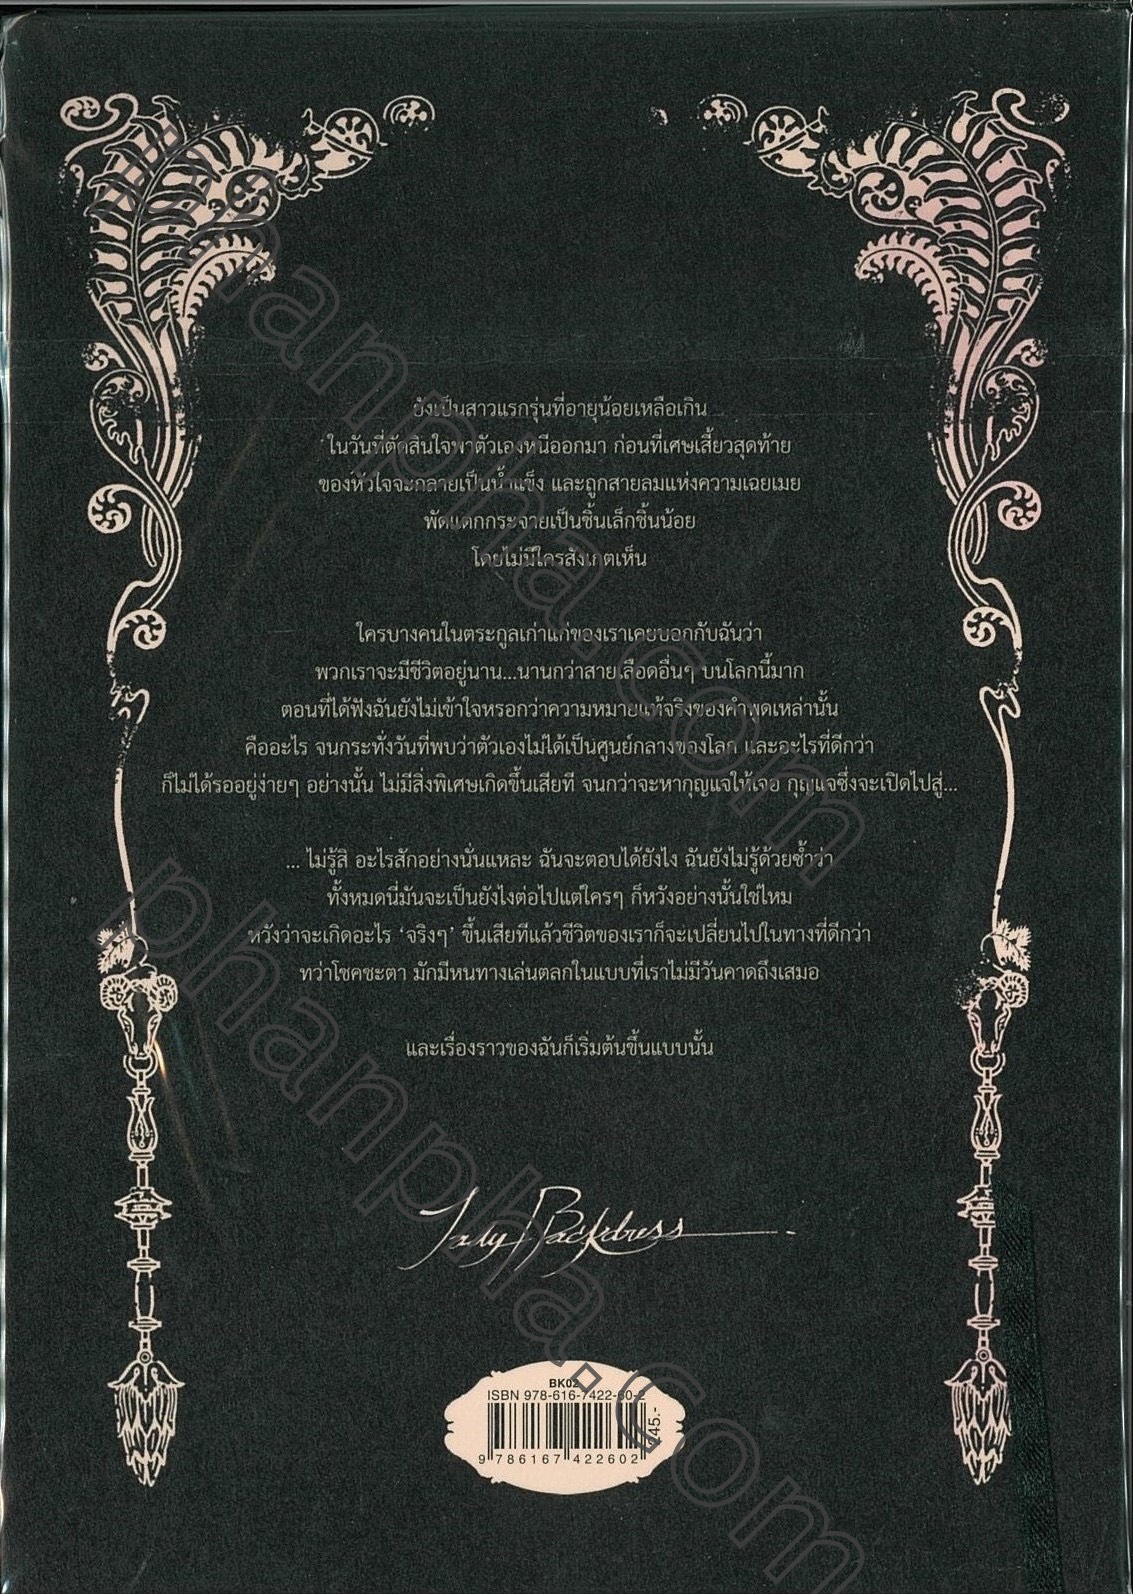 ยังเป็นสาวแรกรุ่นที่อายุน้อยเหลือเกิน
ในวันที่ตัดสินใจพาตัวเองหนีออกมา ก่อนที่เศษเสี้ยวสุดท้าย
ของหัวใจจะกลายเป็นน้ำแข็ง และถูกสายลมแห่งความเฉยเมย
พัดแตกกระจายเป็นชิ้นเล็กชิ้นน้อย
โดยไม่มีใครสังเกตเห็น
ใครบางคนในตระกูลเก่าแก่ของเราเคยบอกกับฉันว่า
พวกเราจะมีชีวิตอยู่นาน...นานกว่าสายเลือดอื่นๆ บนโลกนี้มาก
ตอนที่ได้ฟังฉันยังไม่เข้าใจหรอกว่าความหมายแท้จริงของคำพูดเหล่านั้น
คืออะไร จนกระทั่งวันที่พบว่าตัวเองไม่ได้เป็นศูนย์กลางของโลก และอะไรที่ดีกว่า
ก็ไม่ได้รออยู่ง่ายๆ อย่างนั้น ไม่มีสิ่งพิเศษเกิดขึ้นเสียที จนกว่าจะหากุญแจให้เจอ กุญแจซึ่งจะเปิดไปสู่...
... ไม่รู้สิ อะไรสักอย่างนั่นแหละ ฉันจะตอบได้ยังไง ฉันยังไม่รู้ด้วยซ้ำว่า
ทั้งหมดนี่มันจะเป็นยังไงต่อไปแต่ใครๆ ก็หวังอย่างนั้นใช่ไหม
หวังว่าจะเกิดอะไร ‘จริงๆ’ ขึ้นเสียทีแล้วชีวิตของเราก็จะเปลี่ยนไปในทางที่ดีกว่า
ทว่าโชคชะตา มักมีหนทางเล่นตลกในแบบที่เราไม่มีวันคาดถึงเสมอ
และเรื่องราวของฉันก็เริ่มต้นขึ้นแบบนั้น
BK02
ISBN 978-616-7422-60-2
45.-
9 786167 422602
phanpha.com
phanpha.com